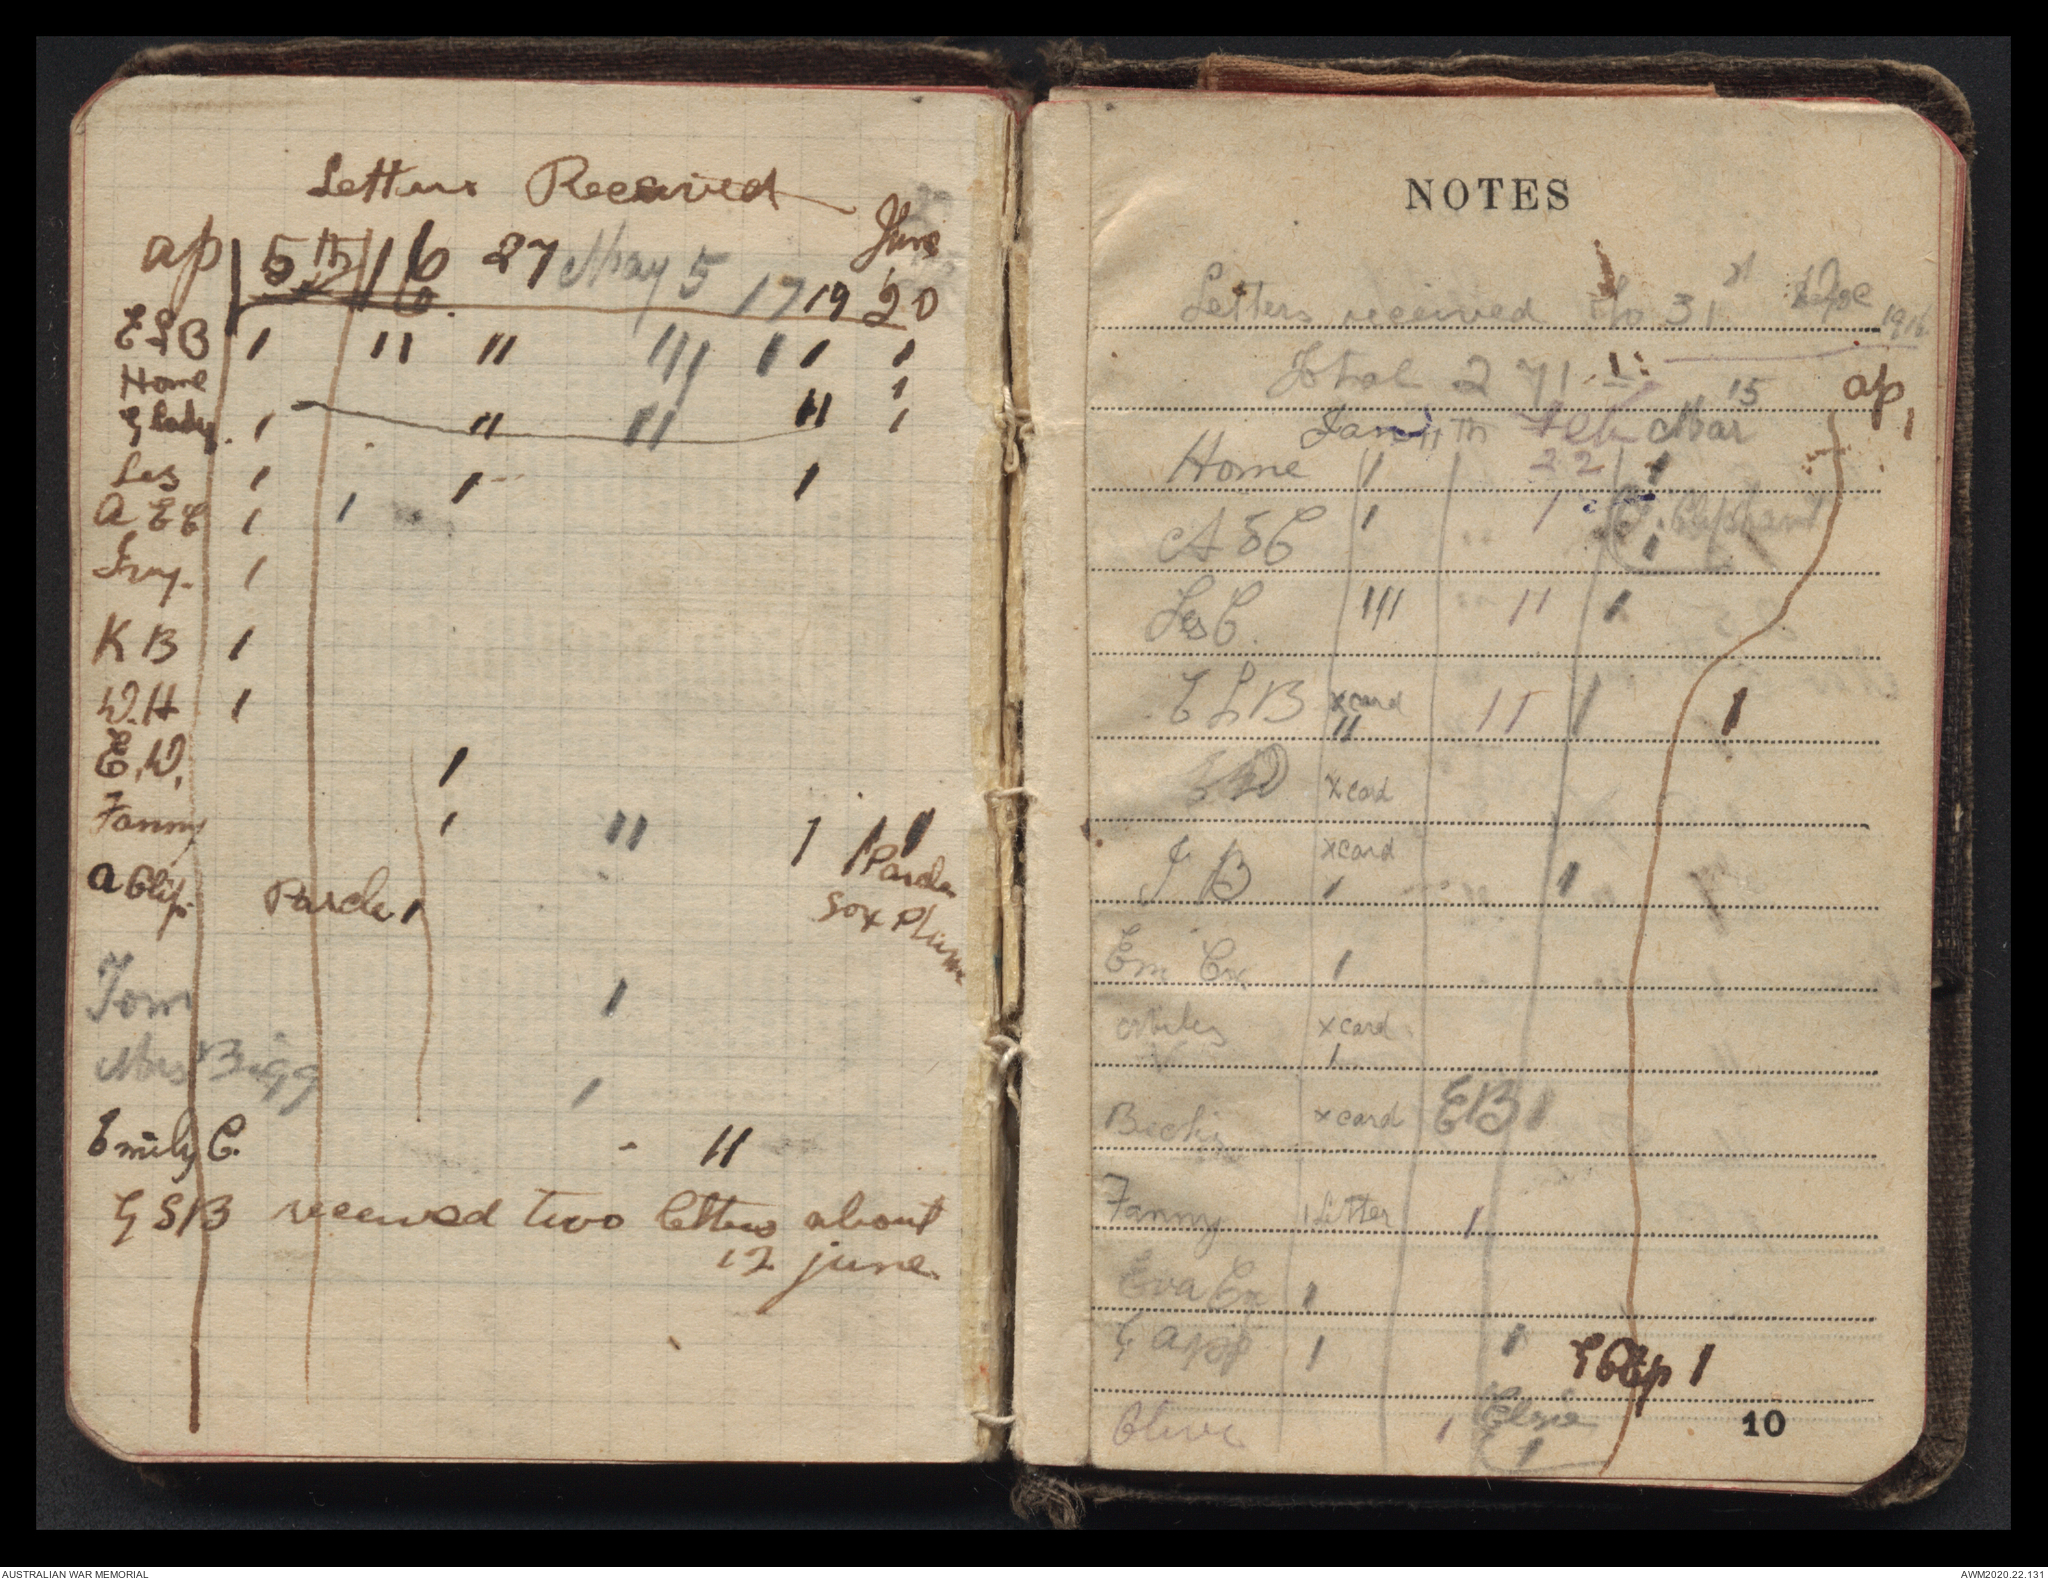 Letters Received
ap 5th 16 27 May 5 17 19 June 20
ELB 1 11 11 111 1 1 1
Home 1
Glady. 1 11 11 11 1
Les 1 1 1
A E C 1 1
Ivy. 1
K B 1
W.H 1
E.W. 1
Fanny 1 11 1 1 1
a Clip. Parcle 1 Parcle
sox Plum
Tom 1
Mrs Bigg 1
Emily C. 11
G S B received two letters about
12 june
NOTES
Letters received to 31st Dec 1916
Total 271
Jan 11th Feb 22 Mar 15 ap 1
Home 1 1
A E C 1 1 Oliphant 1
Les C. 111 11 1
E L B x card 11 11 1 1
x card
J B x card 1 1
Em Cx 1
Miles x card 1
Becky x card EB 1
Fanny 1 Letter 1
Eva Cx 1
G app 1 1 1
Olive 1 Elsie 1
10
AUSTRALIAN WAR MEMORIAL
AWM2020.22.131